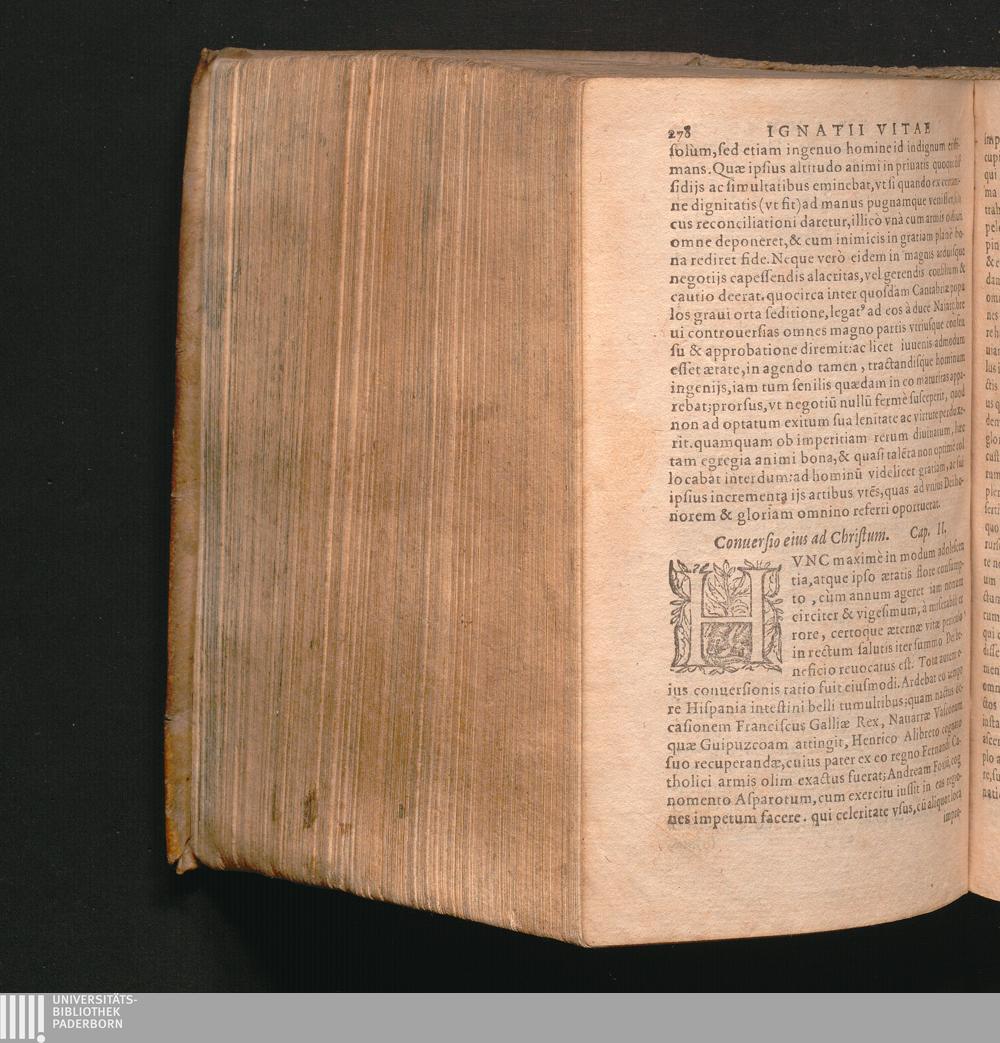 278 IGNATII VITAE
solùm, sed etiam ingenuo homine id indignum
mans. Quæ ipsius altitudo animi in priuatis quoque
sidijs ac simultatibus eminebat, vt si quando ex
ne dignitatis (vt fit) ad manus pugnamque
cus reconciliationi daretur, illicò vnà cum armis odium
omne deponeret, & cum inimicis in gratiam planè bo-
na rediret fide. Neque verò eidem in magnis arduisque
negotijs capessendis alacritas, vel gerendis consilium &
cautio deerat. quocirca inter quosdam Cantabriæ popu
los graui orta seditione, legat⁹ ad eos à duce
ui controuersias omnes magno partis vtriusque consen
su & approbatione diremit: ac licet iuuenis admodum
esset ætate, in agendo tamen, tractandisque hominum
ingenijs, iam tum senilis quædam in eo maturitas appa-
rebat; prorsus, vt negotiū nullū fermè susceperit, quod
non ad optatum exitum sua lenitate ac virtute perduxe-
rit. quamquam ob imperitiam rerum diuinarum, hæc
tam egregia animi bona, & quasi talēta non optimè col
locabat interdum: ad hominū videlicet gratiam, ac sui
ipsius incrementa ijs artibus vtēs, quas ad vnius Dei ho-
norem & gloriam omnino referri oportuerat.
Conuersio eius ad Christum. Cap. II.
HVNC maximè in modum adolescen
tia, atque ipso ætatis flore consump-
to, cùm annum ageret iam nonum
circiter & vigesimum, à miserabili er
rore, certoque æternæ vitæ periculo,
in rectum salutis iter summo Dei be-
neficio reuocatus est. Tota autem e-
ius conuersionis ratio fuit eiusmodi. Ardebat eo tempo
re Hispania intestini belli tumultibus; quam nactus oc-
casionem Franciscus Galliæ Rex, Nauarræ Vasconum
quæ Guipuzcoam attingit, Henrico Alibreto cognato
suo recuperandæ, cuius pater ex eo regno Fernandi Ca-
tholici armis olim exactus fuerat; Andream Foxii, cog
nomento Asparotum, cum exercitu iussit in eas regio-
nes impetum facere. qui celeritate vsus, cū aliquot loca
impe-
UNIVERSITÄTS-
BIBLIOTHEK
PADERBORN